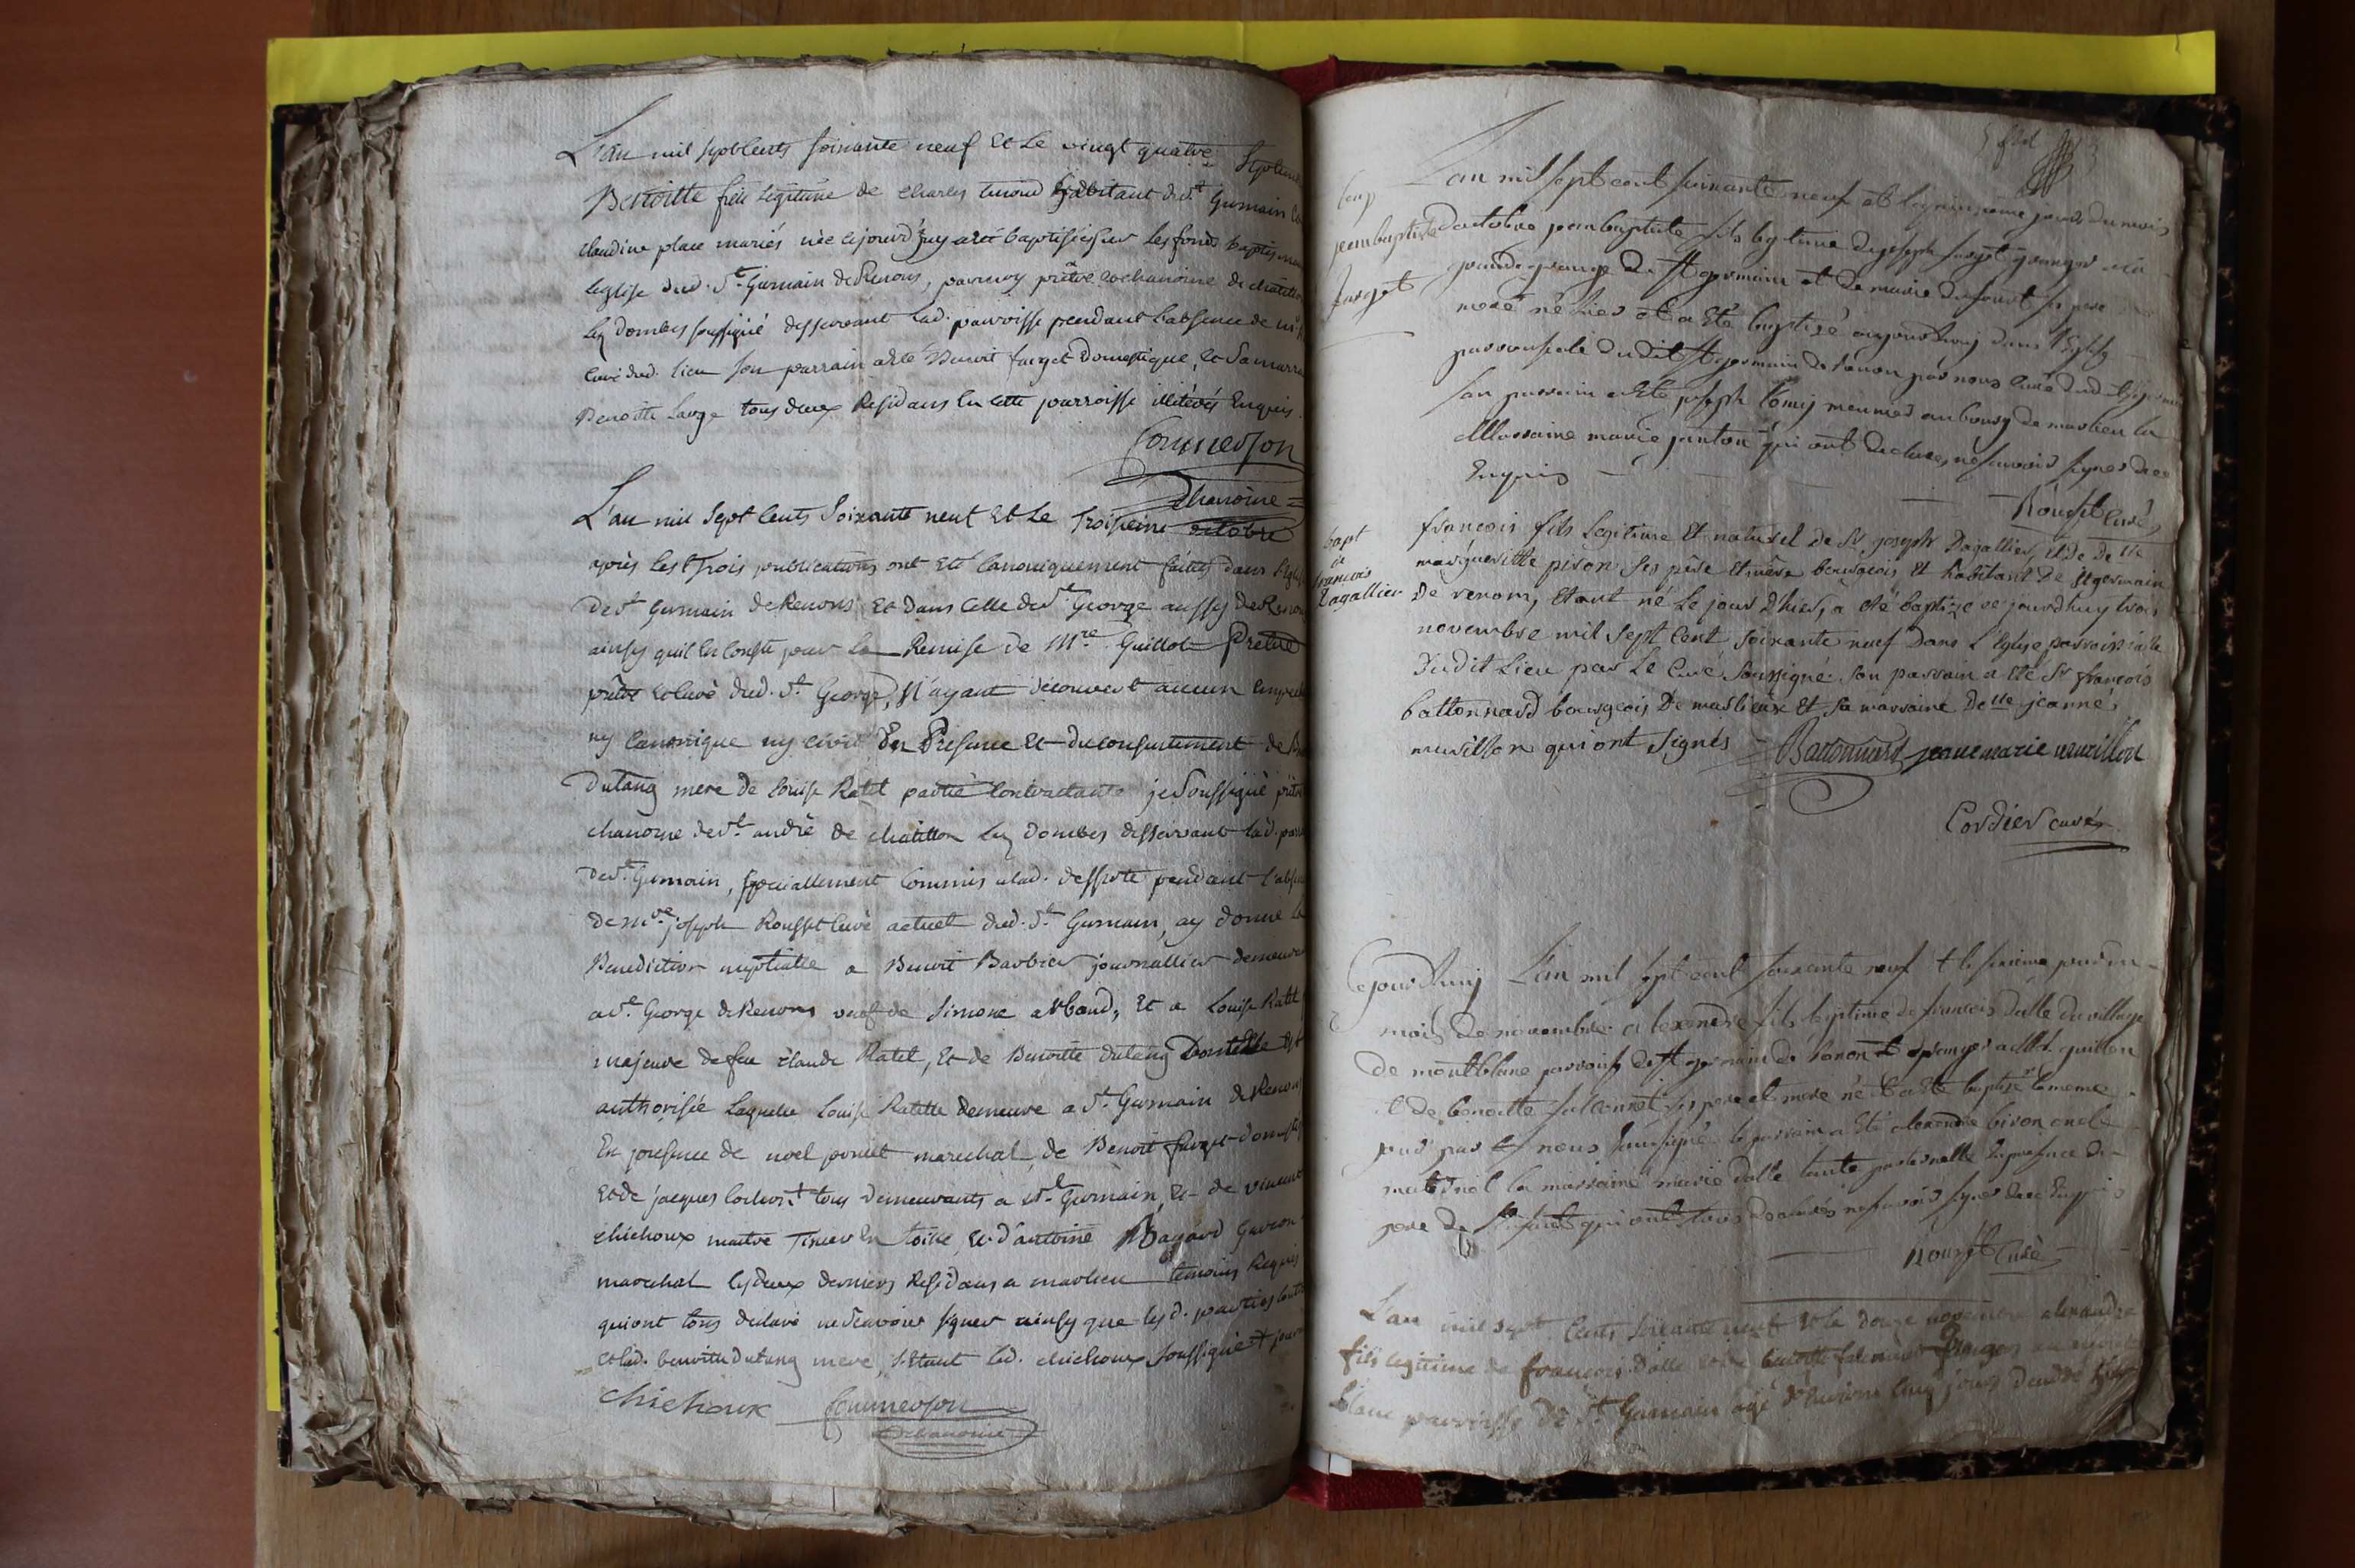 L'an mil sept Cents soixante neuf et Le vingt quatre Septembre
Benoitte fille legitime de Charles habitant dud. St Germain
Claudine place mariés née cejourd'huy a été baptisée sur les fonds baptismaux
leglise dud. St Germain de Renons, par moy prêtre et chanoine de chatillon
les dombes soussigné desservant lad. parroisse pendant l'absence de
curé dud. lieu son parrain a été Benoit farget domestique, et sa marraine
Benoitte Large tous deux Residans en cette parroisse illiterés Enquis.
Commerson
Chanoine
L'an mil Sept Cents Soixante neuf et Le Troisieme octobre
après les trois publications ont été Canoniquement faittes dans l'Eglise
de St Germain de Renons et dans Celle de St George aussy de Renons
ainsy quil en conste par la Remise de Mre Guillot Prêtre
prêtre et curé dud. St George, N'ayant découvert aucun
ny Canonique ny civil En Presence et du consentement de
Dutang mere de Louise Ratet partie Contractante je soussigné prêtre
chanoine de St andré de chatillon les Dombes desservant lad. parr
de St Germain, specialement Commis alad. desserte pendant l'absence
de Mre joseph Rousset curé actuel dud. St Germain, ay donné La
Benediction nuptialle a Benoit Barbier journallier demeurant
a St George de Renons veuf de Simone, et a Louise Ratet
majeure de feu Claude Ratet, et de Benoitte dutang
authorisée Laquelle Louise Ratette demeure a St Germain de Renons
En presence de noel ponset marechal, de Benoit farget domestique
et de jacques tous demeurants a St Germain, et de vincent
chichoux maitre Tissier en toile, et d'antoine Bayard Garcon
marechal les deux derniers Residans a marlieu temoins Requis
qui ont tous declaré ne scavoir signer ainsy que les d. parties
et lad. benoitte dutang mere, lad. chichoux soussigné
Chichoux Commerson
chanoine
L'an mil sept cent soixante neuf et le quinzieme jour du mois
jean baptiste d'octobre jean baptiste fils legitime de joseph farget granger a la
farget grande grange de St germain et de marie ses pere
mere né hier et a été baptisé aujourdhuy dans l'Eglise
parroissiale dudit St germain de renon par nous curé dudit St germain
son parrain a été joseph meunier au bourg de marlieu la
Marraine marie janton qui ont declaré ne scavoir signer de ce
Enquis
Rousset curé
bapt
de
francois
Dagallier
francois fils legitime et naturel de Sr joseph Dagallier, et de Delle
marguerittte pison ses père et mère bourgeois et habitant de St germain
de renom, etant né Le jour d'hier, a été baptizé ce jourdhuy trois
novembre mil sept cent soixante neuf dans l'Eglise parroissiale
dudit Lieu par Le Curé soussigné. Son parrain a été Sr francois
battonnard bourgeois De marlieux et sa marraine Delle jeanne
murillon qui ont signés Battonnard jeanne marie murillon
Cordier curé
Cejourdhuy L'an mil sept cent soixante neuf et le sixieme jour du
mois de novembre alexandre fils legitime de francois dalle du village
de montblanc parroisse de St germain de renon et granger a Mr guillon
et de benoitte ses pere et mere né et a été baptisé le meme
jour par nous soussigné le parrain a été alexandre bison oncle
maternel la marraine marie dalle tante paternelle En presence du
pere de l'enfant qui ont tous declarés ne scavoir signer de ce Enquis
Rousset Curé
L'an mil sept Cents soixante neuf et le douze novembre alexandre
fils legitime de francois dalle et de benoitte Granger au mont
blanc parroisse de St Germain agé d'environ cinq jours